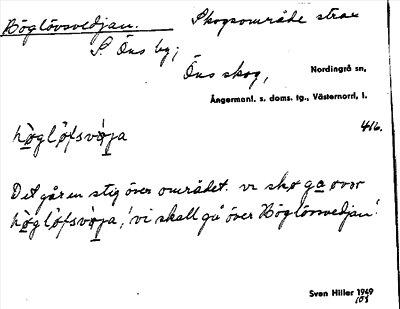 Böglövsvedjan. Skogsområde strax
S. Öns by;
Öns skog,
Nordingrå sn,
Ångermanl. s. doms. tg., Västernorrl. l.
416.
Det går en stig över området. vi skø ga øvər
'vi skall gå över Böglövsvedjan'.
Sven Hiller 1949
108